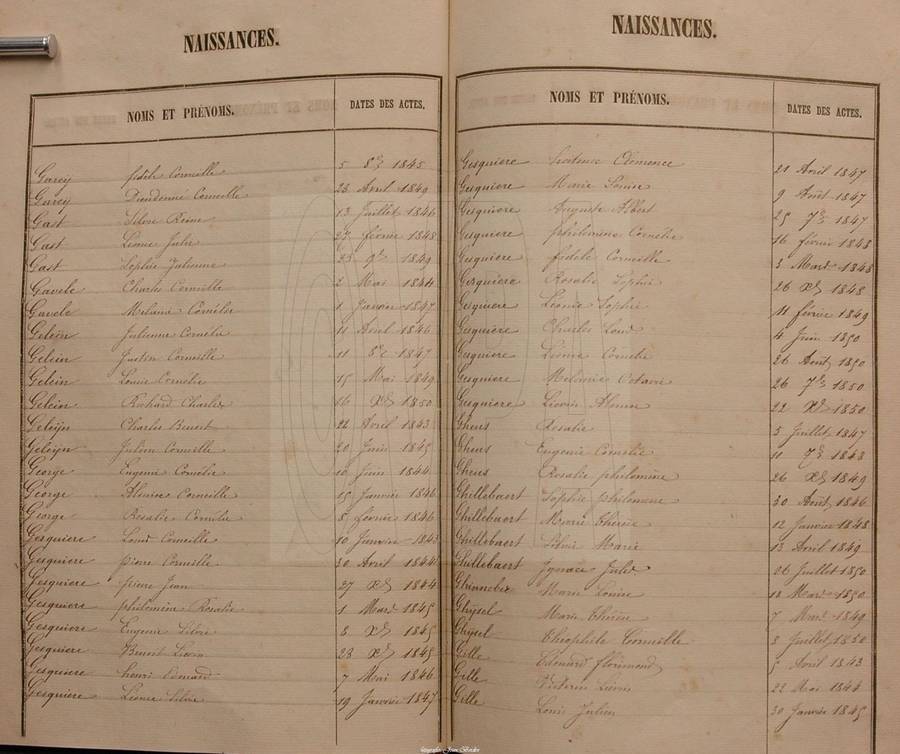 NAISSANCES.
NOMS ET PRÉNOMS. DATES DES ACTES.
Garcy fidele Corneille 5 8bre 1845
Garcy Dieudonné Corneille 28 Avril 1849
Gast Silvie Reine 13 Juillet 1846
Gast Léonie Julie 27 février 1848
Gast Sophie Julienne 9bre 1849
Gavele Charle Corneille 2 Mai 1844
Gavele Mélanie Cornélie 1 Janvier 1847
Geleÿn Julienne Cornélie 11 Avril 1846
Gelein Justin Corneille 11 8bre 1847
Gelein Louise Cornélie 15 Mai 1849
Gelein Richard Charles 16 Xbre 1850
Geleÿn Charles Benoit 22 Avril 1843
Geleÿn Julien Corneille 20 Juin 1845
George Eugenie Cornélie 10 Juin 1844
George Corneille 15 Janvier 1846
George Rosalie Cornélie 8 février 1846
Gesquiere Louis Corneille 10 Janvier 1843
Gesquiere pierre Corneille 30 Avril 1844
Gesquiere pierre Jean 27 Xbre 1844
Gesquiere philomène Rosalie 1 Mars 1845
Gesquiere Eugenie Silvie 8 Xbre 1845
Gesquiere Benoit Léon 23 Xbre 1845
Gesquiere henri Edouard 7 Mai 1846
Gesquiere Léonie Silvie 19 Janvier 1847
NAISSANCES.
NOMS ET PRÉNOMS. DATES DES ACTES.
Gesquiere Clemence 21 Avril 1847
Gesquiere Marie Louise 9 Août 1847
Gesquiere Auguste Albert 25 7bre 1847
Gesquiere philomène Cornélie 16 février 1848
Gesquiere fidele Corneille 3 Mars 1848
Gesquiere Rosalie Sophie 26 Xbre 1848
Gesquiere Léonie Sophie 11 février 1849
Gesquiere Charles Louis 4 Juin 1850
Gesquiere Léonie Cornélie 26 Août 1850
Gesquiere Mélanie Octavie 26 7bre 1850
Gesquiere Liévin 22 Xbre 1850
Gheus Rosalie 5 Juillet 1847
Gheus Eugenie Cornélie 11 7bre 1848
Gheus Rosalie philomène 26 Xbre 1849
Ghillebaert Sophie philomène 30 Août 1846
Ghillebaert Marie thérèse 12 Janvier 1848
Ghillebaert Silvie Marie 13 Avril 1849
Ghillebaert Ignace Jules 26 Juillet 1850
Marie Louise 18 Mars 1850
Ghÿsel Marie thérèse 7 Mars 1849
Ghÿsel théophile Corneille 8 Juillet 1850
Gille Edouard florimond 5 Avril 1843
Gille Victorin Liévin 22 Mai 1844
Gille Louis Julien 30 Janvier 1845